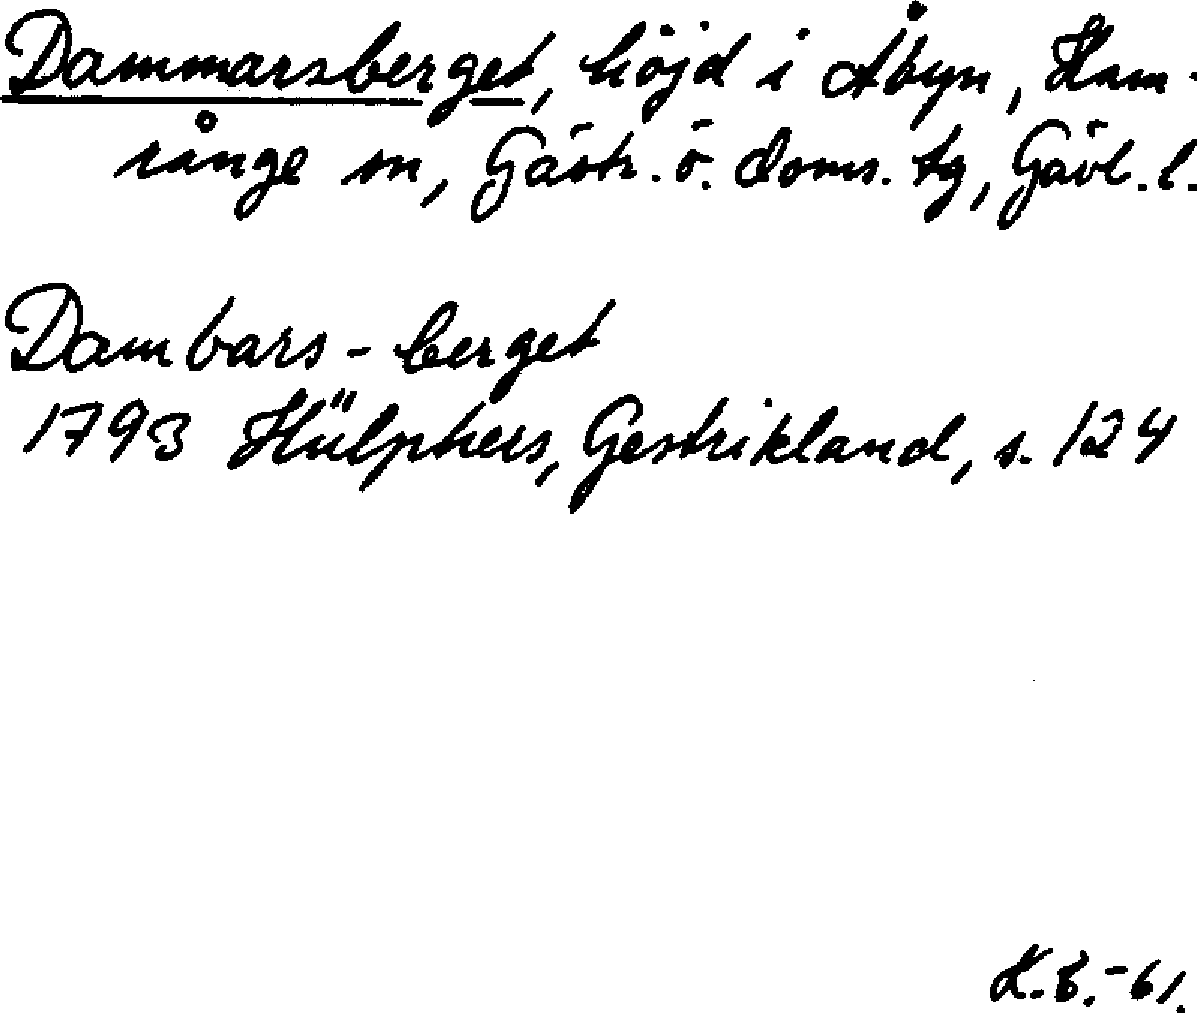 Dammarsberget, höjd i Åbyn, Ham-
rånge sn, Gästr. ö. doms. tg, Gävl. l.
Dambars-berget
1793 Hülphers, Gestrikland, s. 124
K.B.-61.